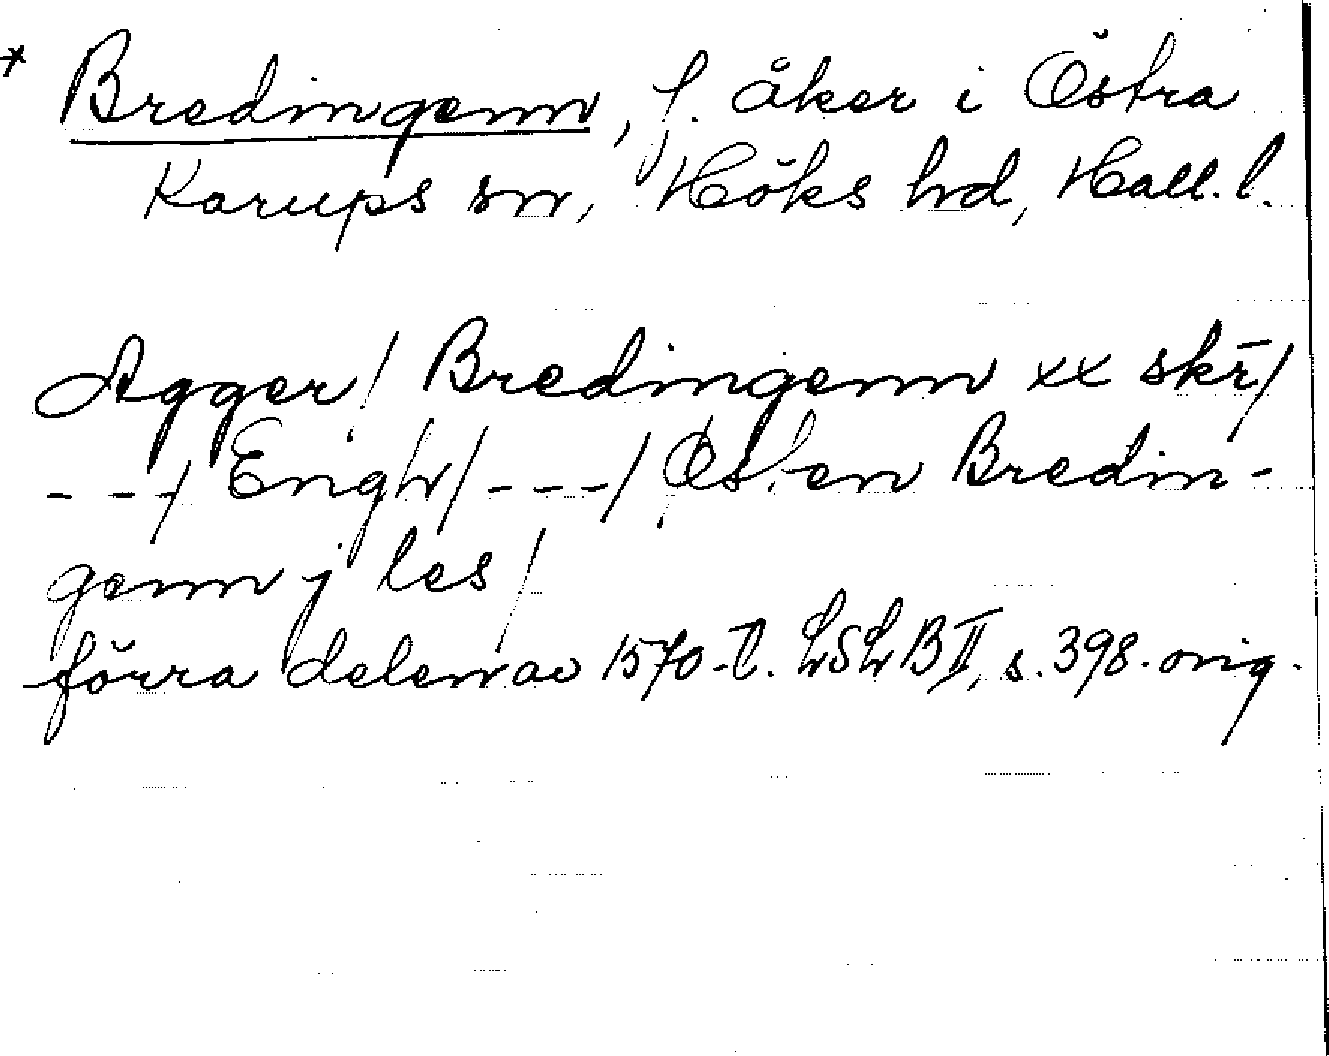 * Bredingenn, f. åker i Östra
Karups sn, Höks hd, Hall. l.
Agger / Bredingenn xx skr̄/
- - -/ Engh/ - - -/ Østen Bredin-
genn j les /
förra delen av 1570-t. LSLB II, s. 398. orig.